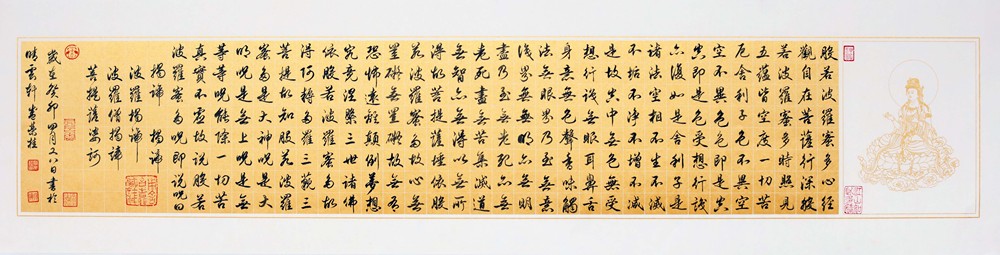 般若波羅蜜多心經
觀自在菩薩行深般
若波羅蜜多時照見
五蘊皆空度一切苦
厄舍利子色不異空
空不異色色即是空
空即是色受想行識
亦復如是舍利子是
諸法空相不生不滅
不垢不淨不增不減
是故空中無色無受
想行識無眼耳鼻舌
身意無色聲香味觸
法無眼界乃至無意
識界無無明亦無無明
盡乃至無老死亦無
老死盡無苦集滅道
無智亦無得以無所
得故菩提薩埵依般
若波羅蜜多故心無
罣礙無罣礙故無有
恐怖遠離顛倒夢想
究竟涅槃三世諸佛
依般若波羅蜜多故
得阿耨多羅三藐三
菩提故知般若波羅
蜜多是大神咒是大
明咒是無上咒是無
等等咒能除一切苦
真實不虛故說般若
波羅蜜多咒即說咒曰
揭諦 揭諦
波羅揭諦
波羅僧揭諦
菩提薩婆訶
歲在癸卯四月又八日書於
晴雲軒